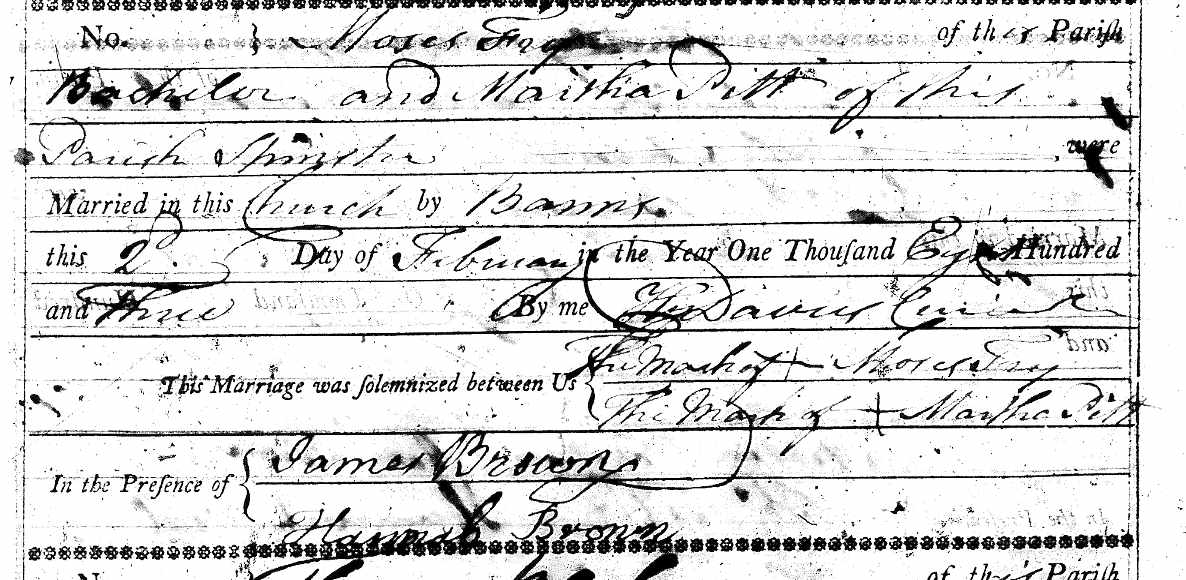 No. } Moses Fry of this Pariſh
Bachelor and Martha Pitt of this
Parish Spinster were
Married in this Church by Banns
this 2d. Day of February in the Year One Thouſand Eight Hundred
and three By me Davies Curate
This Marriage was ſolemnized between Us { The Mark of + Moses Fry
The Mark of + Martha Pitt
In the Preſence of { James Brown
Hannah Brown
No. of this Pariſh